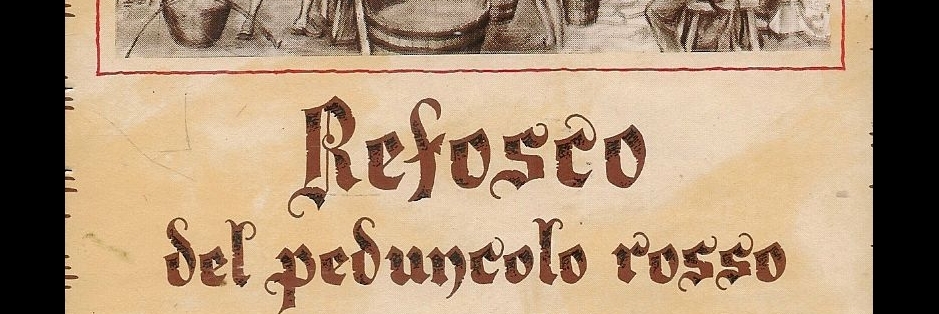 Refosco
del peduncolo rosso